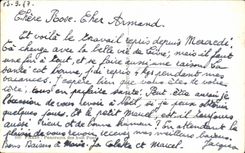 Chère Rose. Cher Armand.
Et voilà le travail repris depuis Mercredi.
Ça change avec la belle vie de mais il faut
une fin à tout, et se faire une raison. La
santé est bonne, j'ai repris pendant mes
vacances. J'espère bien que vous êtes de votre
côté, tous en parfaite santé. Peut être aurai je
l'occasion de vous revoir à Noël, si je peux obtenir
quelques jours. Et le petit Marcel, est il toujours
aussi et de bonne humeur ? En attendant le
plaisir de vous revoir, recevez mes meilleurs baisers
Bons Baisers à Marie, Jo, Colette et Marcel. Jacques